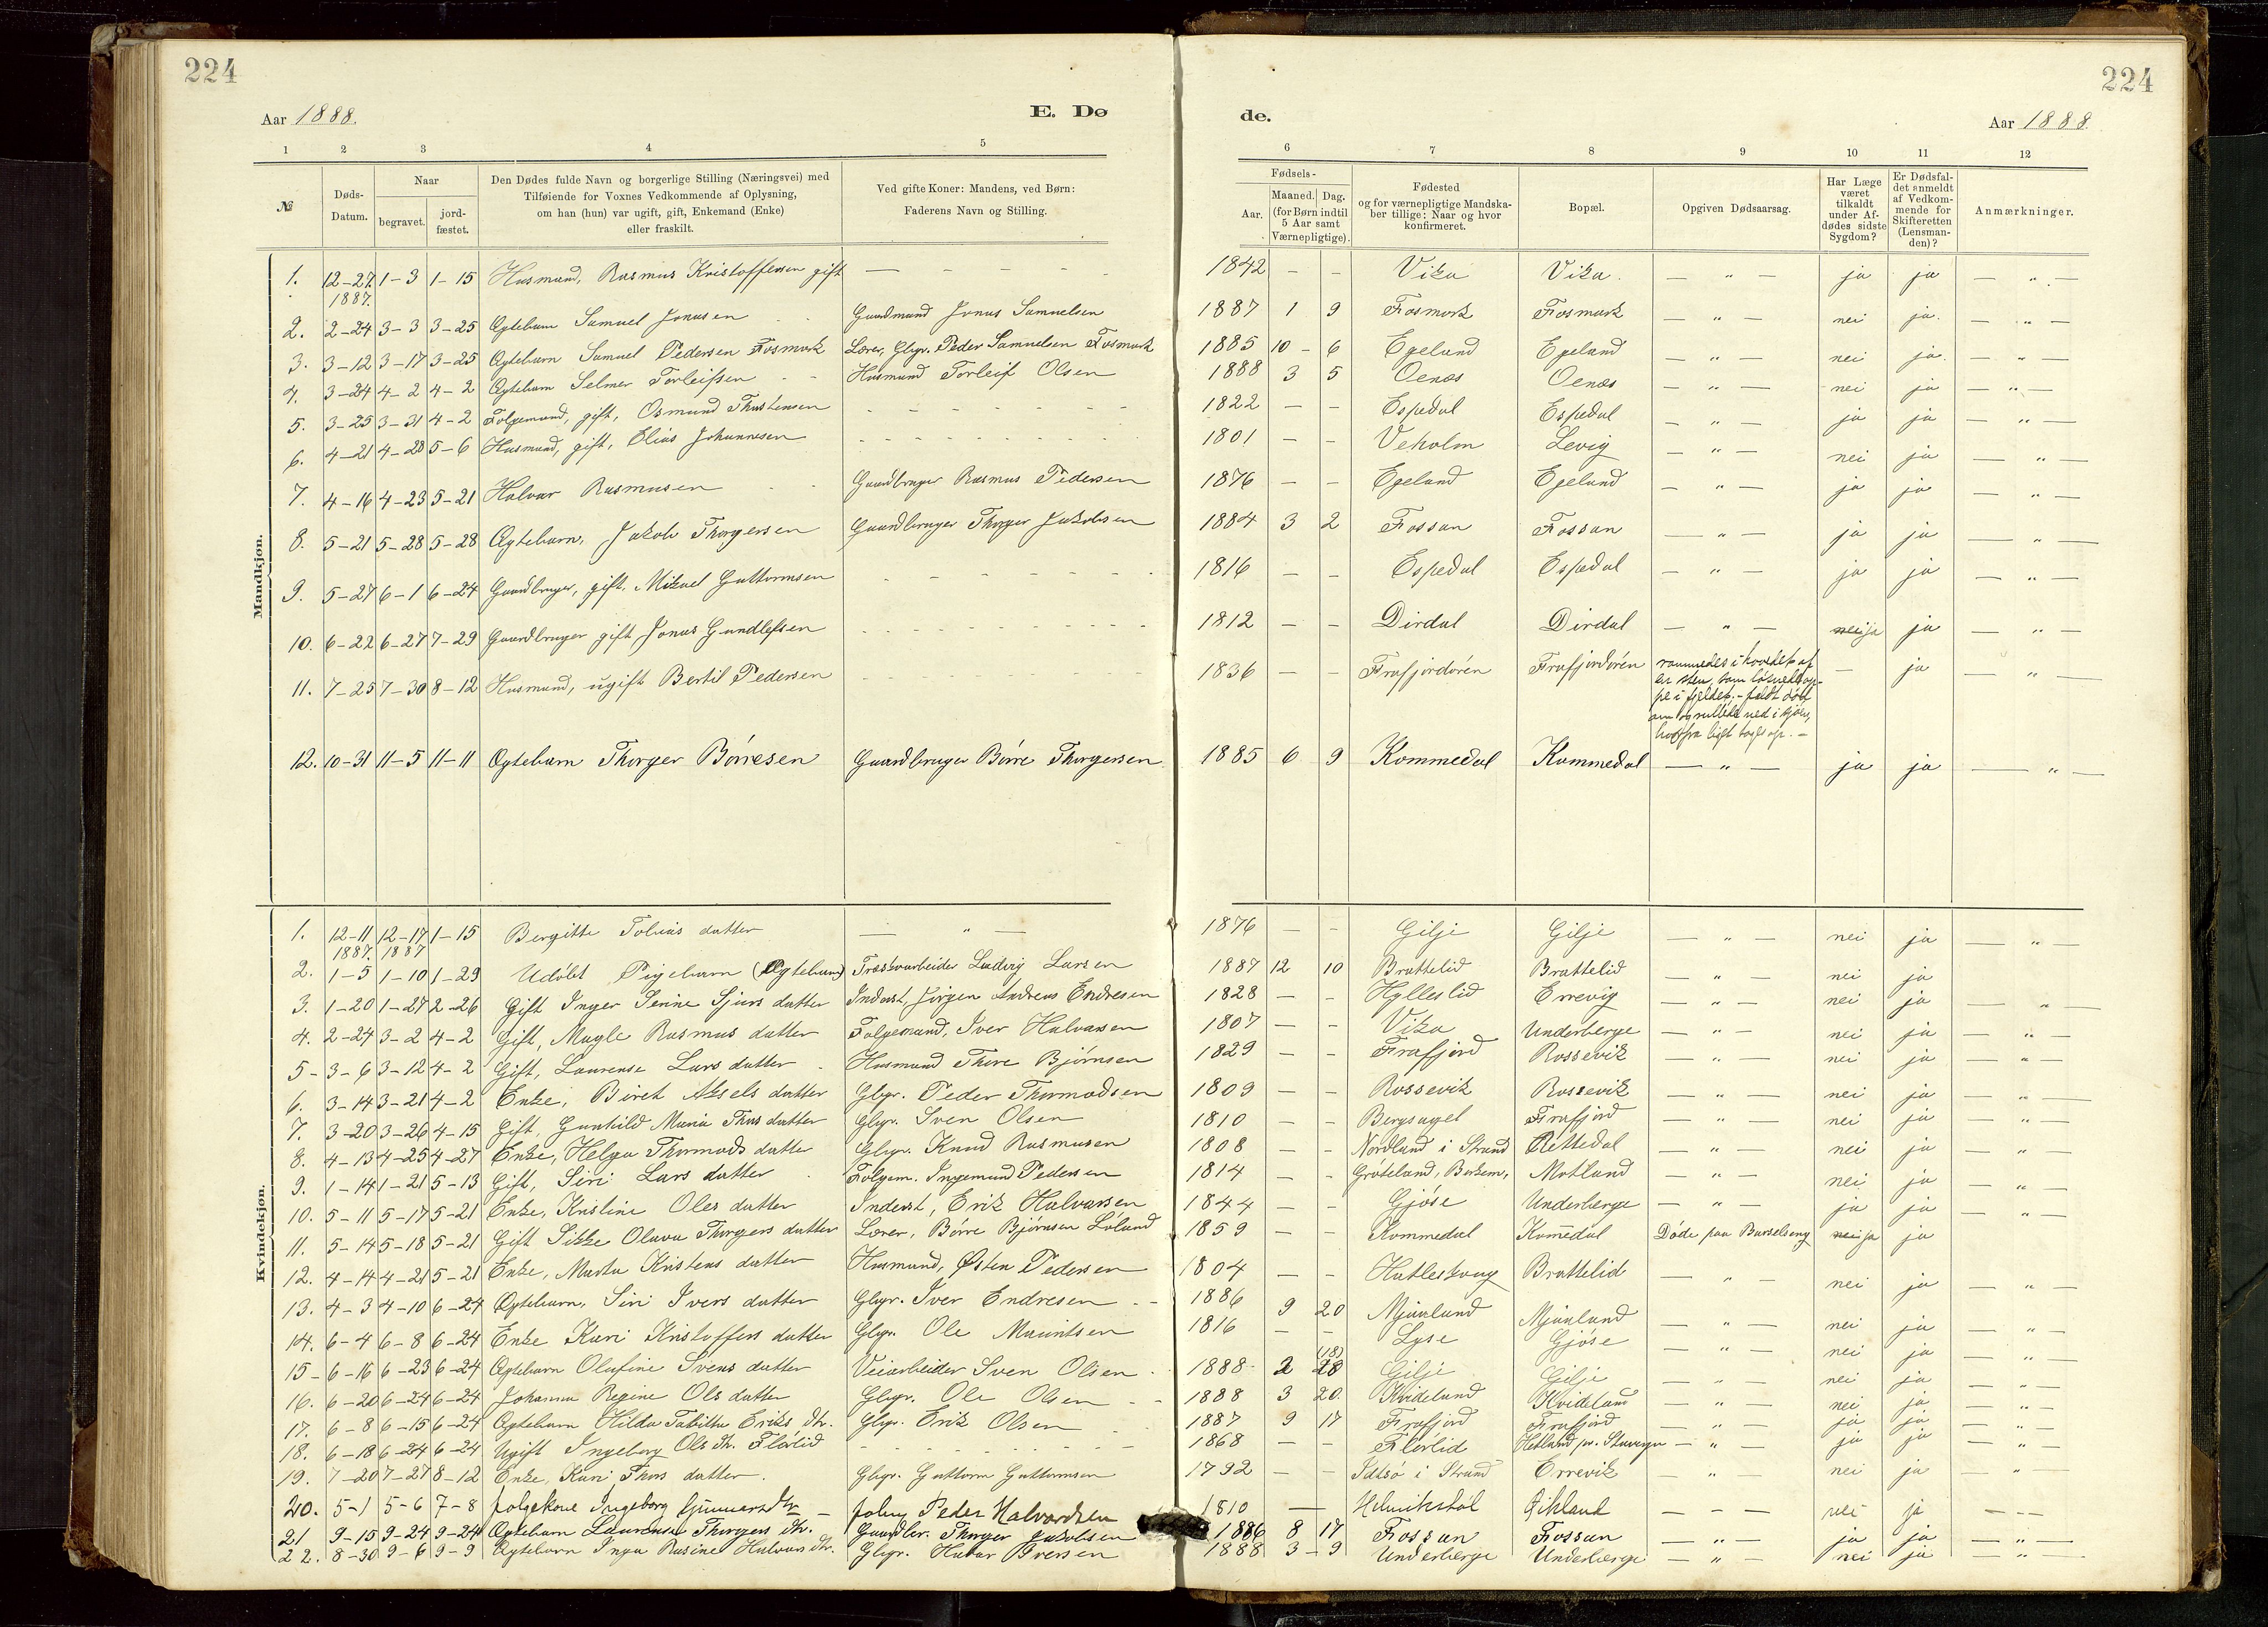 224
224
Aar 1888.
E. Dø
de.
Aar 1888
1 2 3 4 5 6 7 8 9 10 11 12
№
Døds-Datum.
Naar
begravet.
jord-fæstet.
Den Dødes fulde Navn og borgerlige Stilling (Næringsvei) med
Tilføiende for Voxnes Vedkommende af Oplysning,
om han (hun) var ugift, gift, Enkemand (Enke)
eller fraskilt.
Ved gifte Koner: Mandens, ved Børn:
Faderens Navn og Stilling.
Fødsels-
Aar.
Maaned. Dag.
(for Børn indtil
5 Aar samt
Værnepligtige).
Fødested
og for værnepligtige Mandska-
ber tillige: Naar og hvor
konfirmeret.
Bopæl.
Opgiven Dødsaarsag.
Har Læge
været
tilkaldt
under Af-
dødes sidste
Sygdom?
Er Dødsfal-
det anmeldt
af Vedkom-
mende for
Skifteretten
(Lensman-
den)?
Anmærkninger.
Mandkjøn.
1. 12-27. 1887. 1-3 1-15 Husmand, Rasmus Kristoffersen gift — 1842 — — Vika Vika. — " — ja ja — " —
2. 2-24 3-3 3-25 Ægtebarn Samuel Jonasen Gaardmand Jonas Samuelsen 1887 1 9 Fosmark Fosmark — " — nei ja. — " —
3. 3-12 3-17 3-25 Ægtebarn Samuel Pedersen Fosmark Lærer, Gbgr. Peder Samuelsen Fosmark 1885 10 - 6 Egeland Egeland — " — nei ja. — " —
4. 3-24 4-2 4-2 Ægtebarn Selmer Torleifsen Husmand Torleif Olsen 1888 3 5 Oenæs Oenæs — " — nei ja — " —
5. 3-25 3-31 4-2 Følgemand, gift, Osmund Thostensen 1822 — — Espedal Espedal — " — ja ja — " —
6. 4-21 4-28 5-6 Husmand, gift, Elias Johannesen 1801 — — Veholm Levig — " — nei ja — " —
7. 4-16 4-23 5-21 Halvar Rasmusen Gaardbruger Rasmus Pedersen 1876 — — Egeland Egeland — " — ja ja — " —
8. 5-21 5-28 5-28 Ægtebarn, Jakob Thorgersen Gaardbruger Thorger Jakobsen 1884 3 2 Fossan Fossan — " — ja ja — " —
9. 5-27 6-1 6-24 Gaardbruger, gift. Mikael Guttormsen 1816 — — Espedal Espedal — " — ja ja — " —
10. 6-22 6-27 7-29 Gaardbruger gift Jonas Gundlefsen 1812 — — Dirdal Dirdal — " — nei ja ja — " —
11. 7-25 7-30 8-12 Husmand, ugift Bertil Pedersen 1836 — — Frafjordøren Frafjordøren rammedes i hovedet af
en sten, som løsnede op-
pe i fjeldet; - faldt død
om og rullede ned i sjøen,
hvorfra liget togs op. — — ja — " —
12. 10-31 11-5 11-11 Ægtebarn Thorger Børresen Gaardbruger Børre Thorgersen 1885 6 9 Kommedal Kommedal — " — ja ja — " —
Kvindekjøn.
1. 12-11 1887. 12-17 1887 1-15 Bergitte Tobias datter — " — 1876 — — Gilje Gilje — " — nei ja — " —
2. 1-5 1-10 1-29 Udøbt Pigebarn (Ægtebarn) Træskoarbeider Ludvig Larsen 1887 12 10 Brattelid Brattelid — " — nei ja
3. 1-20 1-27 2-26 Gift Inger Serine Sjurs datter Inderst, Jørgen Andreas Endresen 1828 — — Hylleslid Errevig — " — nei ja "
4. 2-24 3-2 4-2 Gift, Magle Rasmus datter Følgemand, Iver Halvarsen 1807 — — Vika Underberge — " — nei ja "
5 - 3-6 3-12 4-2 Gift, Laurense Lars datter Husmand Thore Bjørnsen 1829 — — Frafjord Rossevik " — nei ja — " —
6. 3-14 3-21 4-2 Enke, Biret Aksels datter Gbgr. Peder Thormodsen 1809 — — Rossevik Rossevik — " — nei ja — " —
7. 3-20 3-26 4-15 Gift, Gunhild Maria Thors datter Gbgr. Sven Olsen 1810 — — Bergsagel Frafjord — " — nei ja — " —
8. 4-13 4-25 4-27 Enke, Helga Thormods datter Gbgr. Knud Rasmusen 1808 — — Nordland i Strand Rettedal — " — nei ja — " —
9. 1-14 1-21 5-13 Gift, Siri Lars datter Følgem. Ingemund Pedersen 1814 — — Grøteland, Motland — " — nei ja — " —
10. 5-11 5-17 5-21 Enke, Kristine Oles datter Inderst, Erik Halvarsen 1844 — — Gjøse Underberge — " — ja ja — " —
11. 5-14 5-18 5-21 Gift Sikke Olava Thorgers datter Lærer, Børre Bjørnsen Løland 1859 — — Kommedal Komedal Døde paa Barselseng nei ja ja
12. 4-14 4-21 5-21 Enke, Marta Kristens datter Husmand, Østen Pedersen 1804 — — Hatleskaug Brattelid — " — nei ja — " —
13. 4-3 4-10 6-24 Ægtebarn, Siri Ivers datter Gbgr. Iver Endresen 1886 9 20 Mjaaland Mjaaland — " — nei ja — " —
14. 6-4 6-8 6-24 Enke Kari Kristoffers datter Gbgr. Ole Mauritsen 1816 — — Lyse Gjøse — " — nei ja — " —
15 - 6-16 6-23 6-24 Ægtebarn Olufine Svens datter Veiarbeider Sven Olsen 1888 2 28 (18) Gilje Gilje nei ja — " —
16. 6-20 6-24 6-24 Johanna Regine Ols datter Gbgr. Ole Olsen 1888 3 20. Kvideland Kvideland — " — nei ja — " —
17. 6-8 6-15 6-24 Ægtebarn Hilda Tabitha Eriks dtr. Gbgr. Erik Olsen 1887 9 17 Frafjord Frafjord — " — ja ja — " —
18. 6-18 6-24 6-24 Ugift Ingeborg Ols dtr. Flørlid 1868 — — Flørlid Hetland pr. Stavager — " — ja ja "
19. 7-20 7-27 8-12 Enke, Kari Thors datter Gbgr. Guttorm Guttormsen 1792 — — Idsø i Strand Errevik " nei ja — " —
20. 5-1 5-6 7-8 følgekone Ingeborg Gunnarsdtr følg Peder Halvardsen 1810 — Helmikstøl Oikland — — nei ja — — —
21 9-15 9-24 9-24 Ægtebarn Laurense Thorgers dtr. Gaardbr. Thorger Jakobsen 1886 8 17 Fossan Fossan — " — ja ja — " —
22. 8-30 9-6 9-9 Ægtebarn Inga Rasine Halvars dtr. Gbgr. Halvar Iversen 1888 3 - 9 Underberge Underberge — " — nei ja — " —